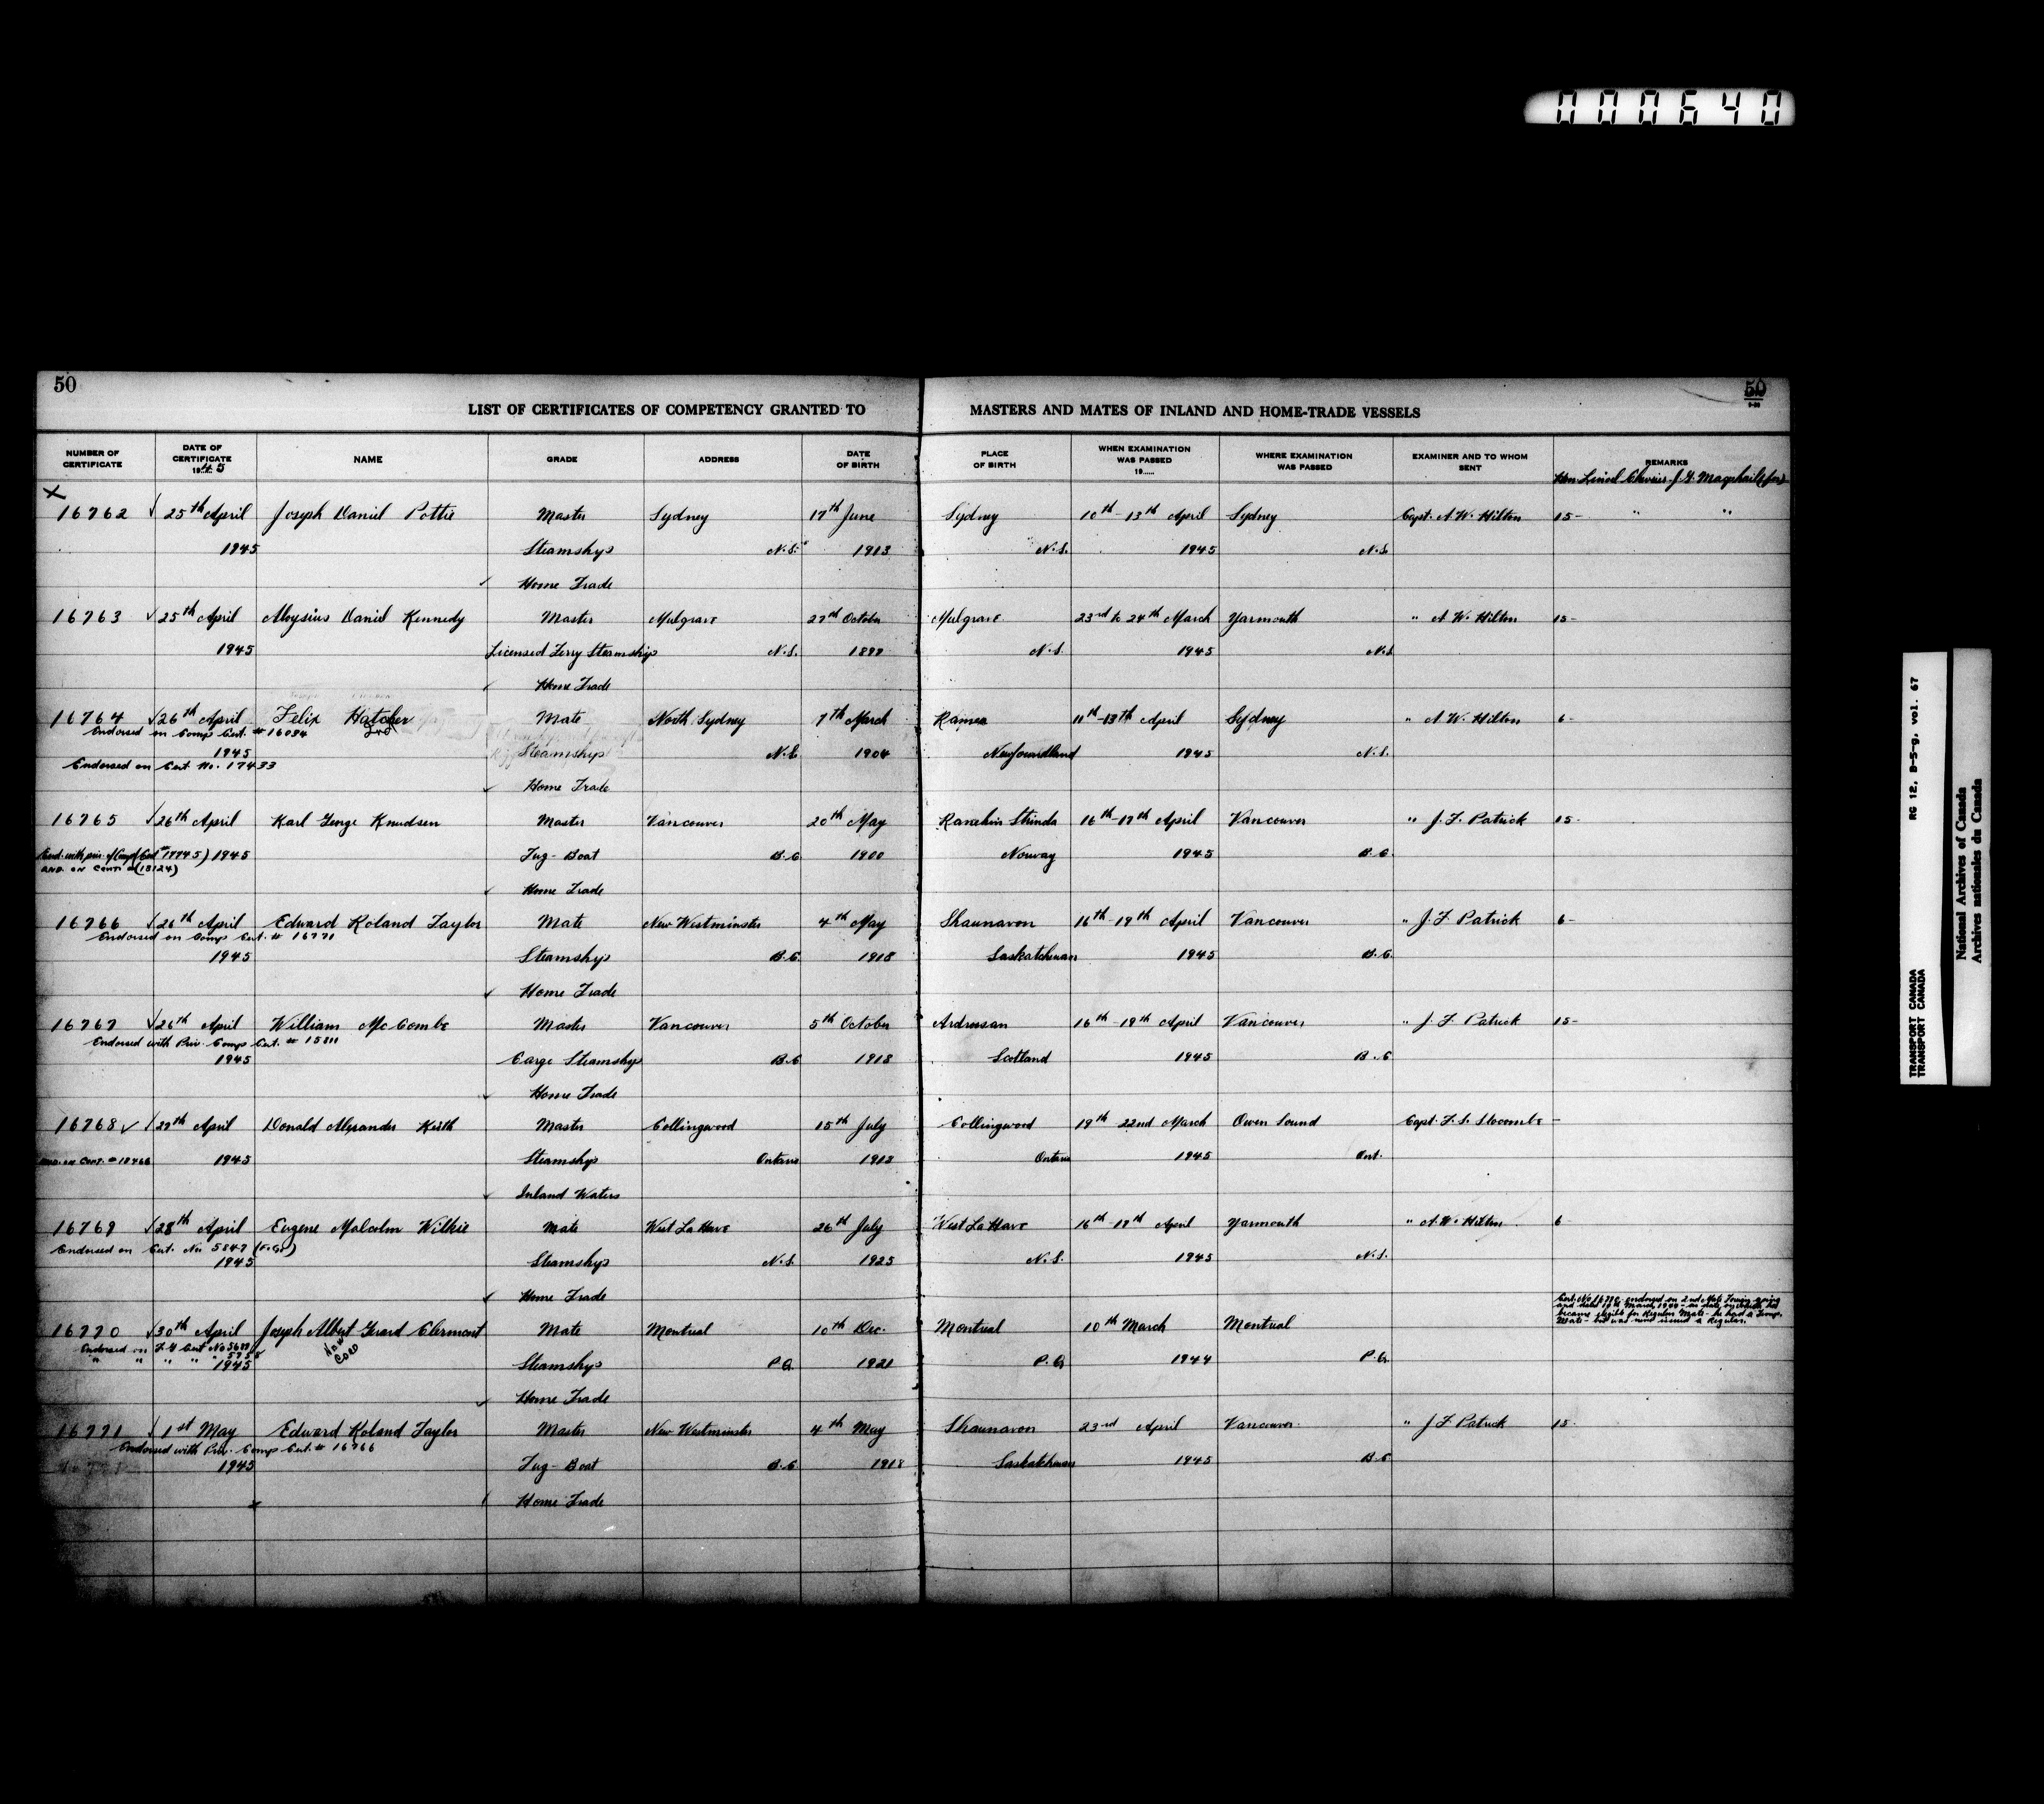 000640
50
50
LIST OF CERTIFICATES OF COMPETENCY GRANTED TO MASTERS AND MATES OF INLAND AND HOME-TRADE VESSELS
NUMBER OF CERTIFICATE DATE OF CERTIFICATE 1945 NAME GRADE ADDRESS DATE OF BIRTH PLACE OF BIRTH WHEN EXAMINATION WAS PASSED 19 WHERE EXAMINATION WAS PASSED EXAMINER AND TO WHOM SENT REMARKS
Hon. Lionel Chevrier - J.
16762 25th April Joseph Daniel Pottie Master Sydney 17th June Sydney 10th - 13th April Sydney Capt. A. W. Hilton 15- " "
1945 Steamships N.S. 1913 N.S. 1945 N.S.
Home Trade
16763 25th April Aloysius Daniel Kennedy Master Mulgrave 27th October Mulgrave 23rd to 24th March Yarmouth " A. W. Hilton 15-
1945 Licensed Ferry Steamship N.S. N.S. 1945 N.S.
Home Trade
16764 26th April Felix Hatcher Mate North Sydney 7th March Ramea 11th-13th April Sydney " A. W. Hilton 6-
Endorsed on Comp Cert. # 16084
1945 Steamships N.S. 1904 Newfoundland 1945 N.S.
Endorsed on Cert. No. 17433
Home Trade
16765 26th April Karl George Knudsen Master Vancouver 20th May 16th-17th April Vancouver " J. F. Patrick 15-
1945 Tug-Boat B.C. 1900 Norway 1945 B.C.
END. ON CONT. # (18124)
Home Trade
16766 26th April Edward Roland Taylor Mate New Westminster 4th May Shaunavon 16th-19th April Vancouver " J. F. Patrick 6-
Endorsed on Comp Cert. # 16771
1945 Steamships B.C. 1918 Saskatchewan 1945 B.C.
Home Trade
16767 26th April William McCombe Master Vancouver 5th October Ardrossan 16th-19th April Vancouver " J. F. Patrick 15-
Endorsed with Priv. Comp Cert. # 15811
1945 Cargo Steamships B.C. 1918 Scotland 1945 B.C.
Home Trade
16768 27th April Donald Alexander Keith Master Collingwood 15th July Collingwood 19th 22nd March Owen Sound Capt. F. S. Slocombe -
END. ON CONT. # 18466 1945 Steamships Ontario 1913 Ontario 1945 Ont.
Inland Waters
16769 28th April Eugene Malcolm Wilkie Mate West La Have 26th July West La Have 16th-17th April Yarmouth " A. W. Hilton 6
Endorsed on Cert. No. 5847 (F.G.)
1945 Steamships N.S. 1925 N.S. 1945 N.S.
Home Trade
Cert. No 16770 endorsed on 2nd Mate Foreign going
and dated 10th March, 1944 - on date on which he
became eligible for Regular Mate - he had a Temp.
Mate - but was never issued a Regular.
16770 30th April Joseph Albert Gerard Clermont Mate Montreal 10th Dec. Montreal 10th March Montreal
Endorsed on F.G Cert No
1945 Steamships P.Q. 1921 P.Q. 1944 P.Q.
Home Trade
16771 1st May Edward Roland Taylor Master New Westminster 4th May Shaunavon 23rd April Vancouver " J. F. Patrick 15-
Endorsed with Priv. Comp Cert. # 16766
1945 Tug-Boat B.C. 1918 Saskatchewan 1945 B.C.
Home Trade
RG 12, B-5-g, vol. 67
TRANSPORT CANADA
TRANSPORT CANADA
National Archives of Canada
Archives nationales du Canada